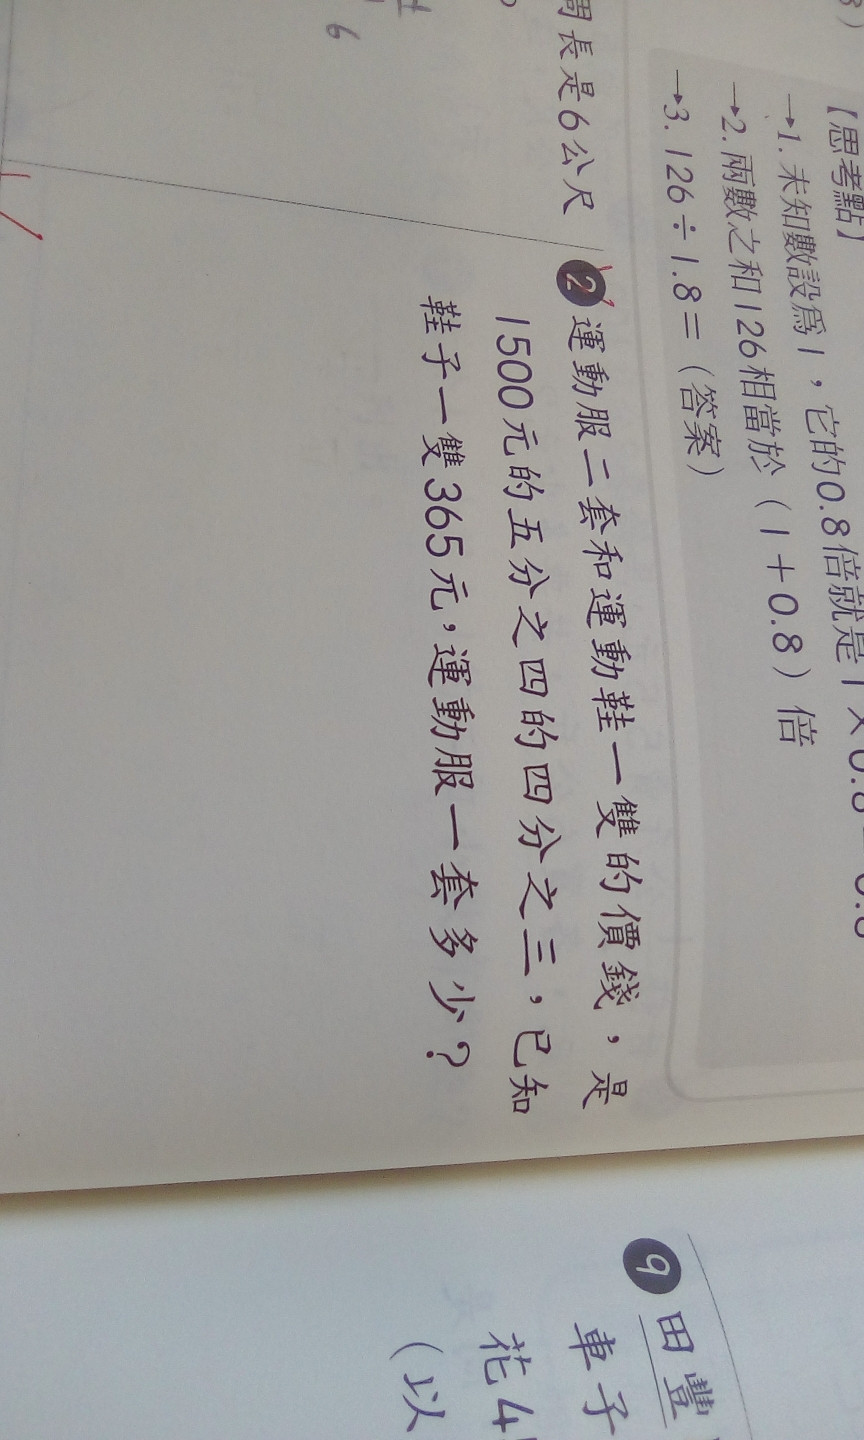 【思考點】
→1. 未知數設爲1，它的0.8倍就是1×0.8=0.8
→2. 兩數之和126相當於（1＋0.8）倍
→3. 126÷1.8＝（答案）
周長是6公尺
6
2 運動服二套和運動鞋一雙的價錢，是
1500元的五分之四的四分之三，已知
鞋子一雙365元，運動服一套多少？
9 田豐
車子
花4
（以